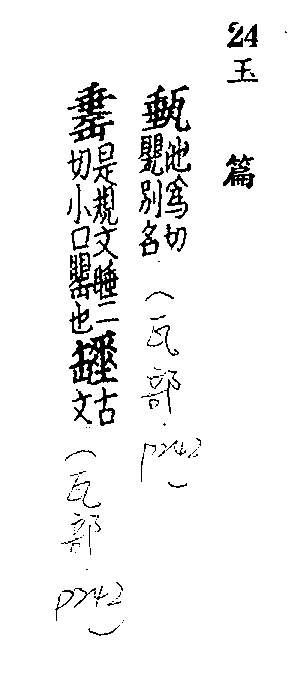 24
玉篇
㼂池為切甖別名（瓦部 p242）
是規文睡二切小口罌也
古文（瓦部 p242）